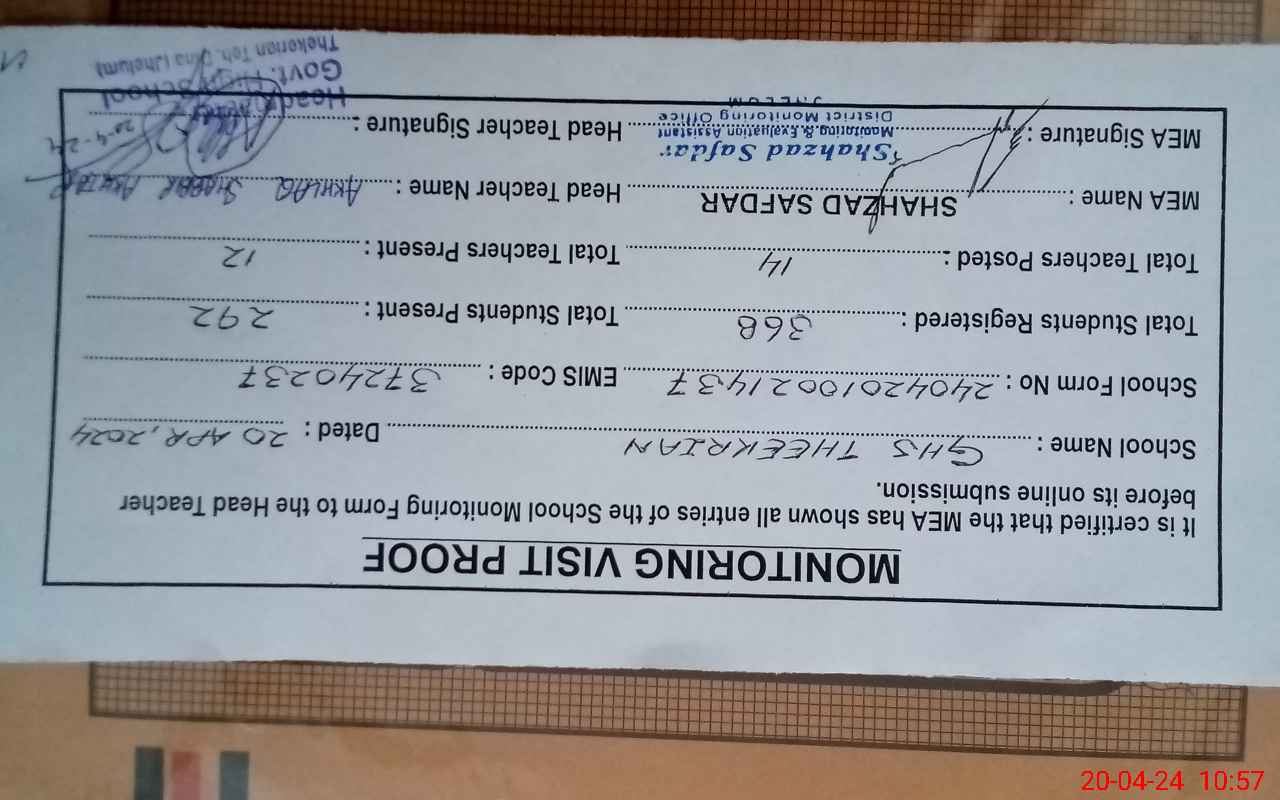 MONITORING VISIT PROOF
It is certified that the MEA has shown all entries of the School Monitoring Form to the Head Teacher
before its online submission.
School Name : GHS THEEKRIAN Dated : 20 APR, 2024
School Form No : 24042010021437 EMIS Code : 37240237
Total Students Registered : 368 Total Students Present : 292
Total Teachers Posted : 14 Total Teachers Present : 12
MEA Name : SHAHZAD SAFDAR Head Teacher Name : AKHLAQ SHABBIR AKHTAR
MEA Signature : Head Teacher Signature : 20-4-24
Shahzad Safdar
Monitoring & Evaluation Assistant
District Monitoring Office
Govt. School
Thekerian Teh. Dina (Jhelum)
20-04-24 10:57